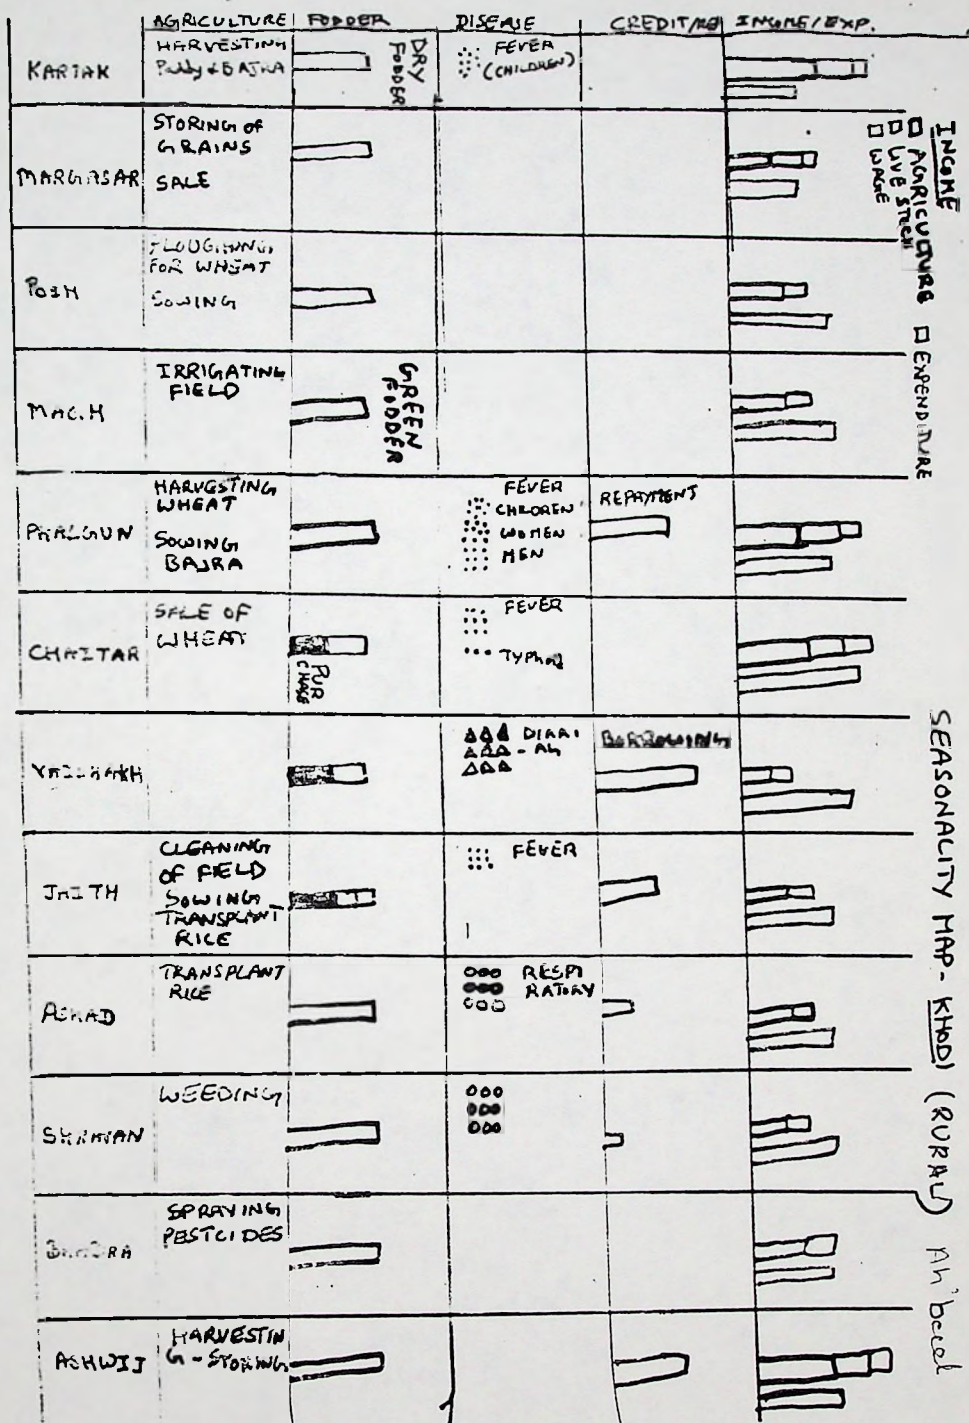 AGRICULTURE FODDER DISEASE CREDIT/RE INCOME/EXP.
KARTAK
HARVESTING
Paddy & BAJRA
DRY
FODDER
FEVER
(CHILDREN)
MARGASAR
STORING OF
GRAINS
SALE
POSH
PLOUGHING
FOR WHEAT
SOWING
MAGH
IRRIGATING
FIELD
GREEN
FODDER
PHALGUN
HARVESTING
WHEAT
SOWING
BAJRA
FEVER
CHILDREN
WOMEN
MEN
REPAYMENT
CHAITAR
SALE OF
WHEAT
PUR
CHASE
FEVER
TYPHOID
VAISHAKH
DIARRI
- AH
BORROWING
JAITH
CLEANING
OF FIELD
SOWING
TRANSPLANT
RICE
FEVER
ASHAD
TRANSPLANT
RICE
RESPI
RATORY
SHRAVAN
WEEDING
BHADRA
SPRAYING
PESTCIDES
ASHWIJ
HARVESTIN
G - STORING
INCOME
AGRICULTURE
LIVE STOCK
WAGE
EXPENDITURE
SEASONALITY MAP - KHODI (RURAL)